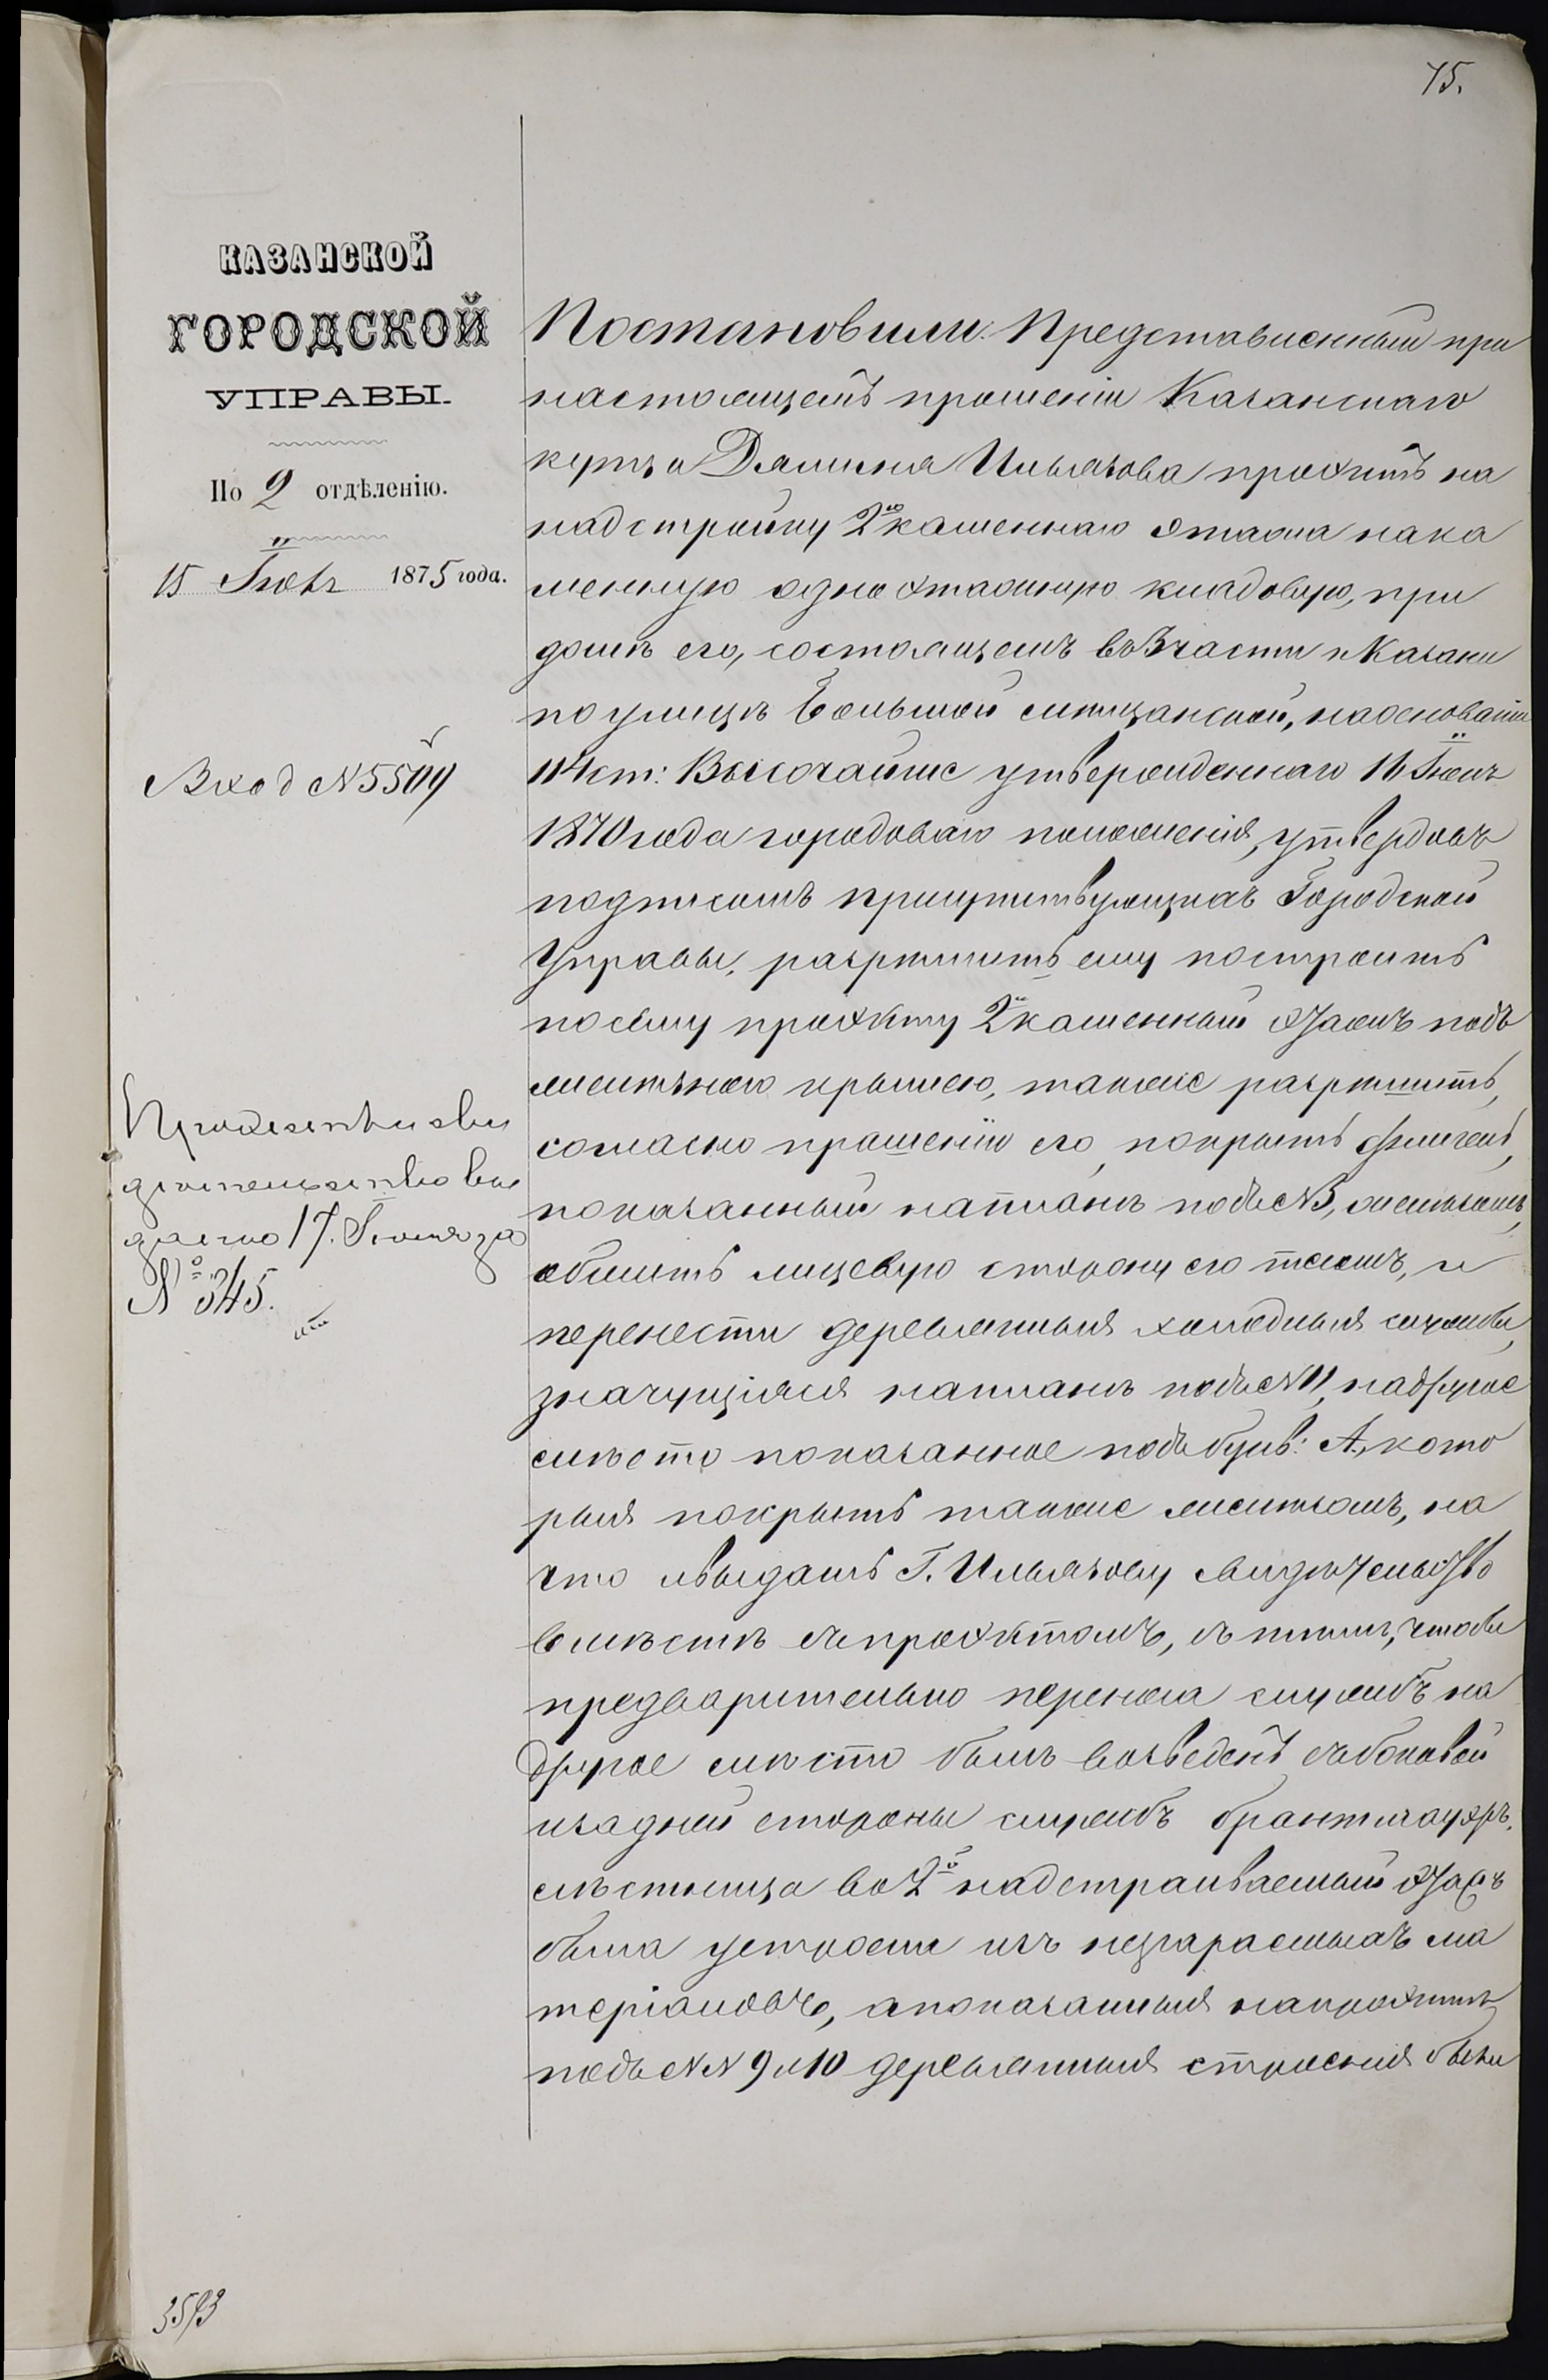 75.
КАЗАНСКОЙ
ГОРОДСКОЙ
УПРАВЫ.
По 2 отдѣленію.
15 Іюня 1875 года.
Вход №5509
Проектъ и сви
дѣтельство вы
дано 17. Іюня за
№ 345.
Постановили: Представленный при
настоящемъ прошеніи Казанскаго
купца Ильязова проэктъ на
надстройку 2го каменнаго этажа на ка
менную одноэтажную кладовую, при
домѣ его, состоящемъ въ 3 части г. Казани
по улицѣ Большой Мѣщанской, на основаніи
114 ст: Высочайше утвержденнаго 16 Іюня
1870 года городоваго положенія, утвердивъ
подписомъ присутствующихъ Городской
Управы, разрѣшить ему построить
по сему проэкту 2й каменный этажъ подъ
желѣзною крышею, также разрѣшить,
согласно прошенію его, покрыть флигель,
показанный на планѣ подъ №3, желѣзомъ,
обшить лицевую сторону его тесомъ, и
перенести деревянныя холодныя службы,
значущіяся на планѣ подъ №11, на другое
мѣсто показанное подъ букв: А, кото
рыя покрыть также желѣзомъ, на
что и выдать Г. Ильязову свидѣтельство
вмѣстѣ съ проэктомъ, съ тѣмъ, чтобы
предварительно переноса службъ на
другое мѣсто былъ возведенъ съ боковой
и задней стороны службъ брантмауэръ,
лѣстница во 2й надстраиваемый этажъ
была устроена изъ незгараемыхъ ма
теріаловъ, а показанныя на проэктѣ
подъ №№ 9 и 10 деревянныя строенія были
3593